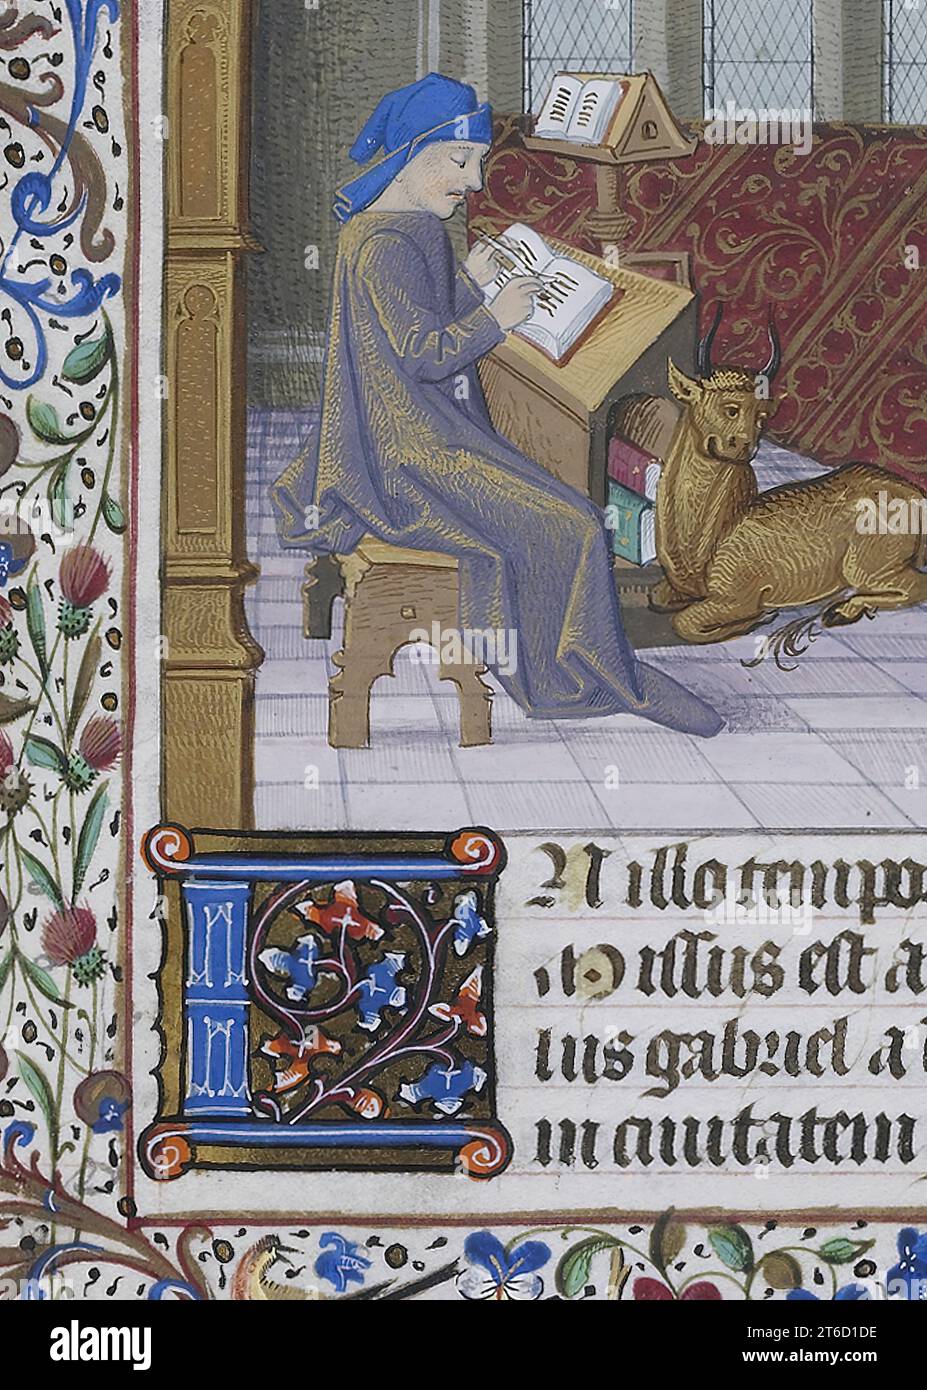 N illo tempo
ito issus est a
lus gabriel a
in ciuitatem
alamy
Image ID: 2T6D1DE
www.alamy.com